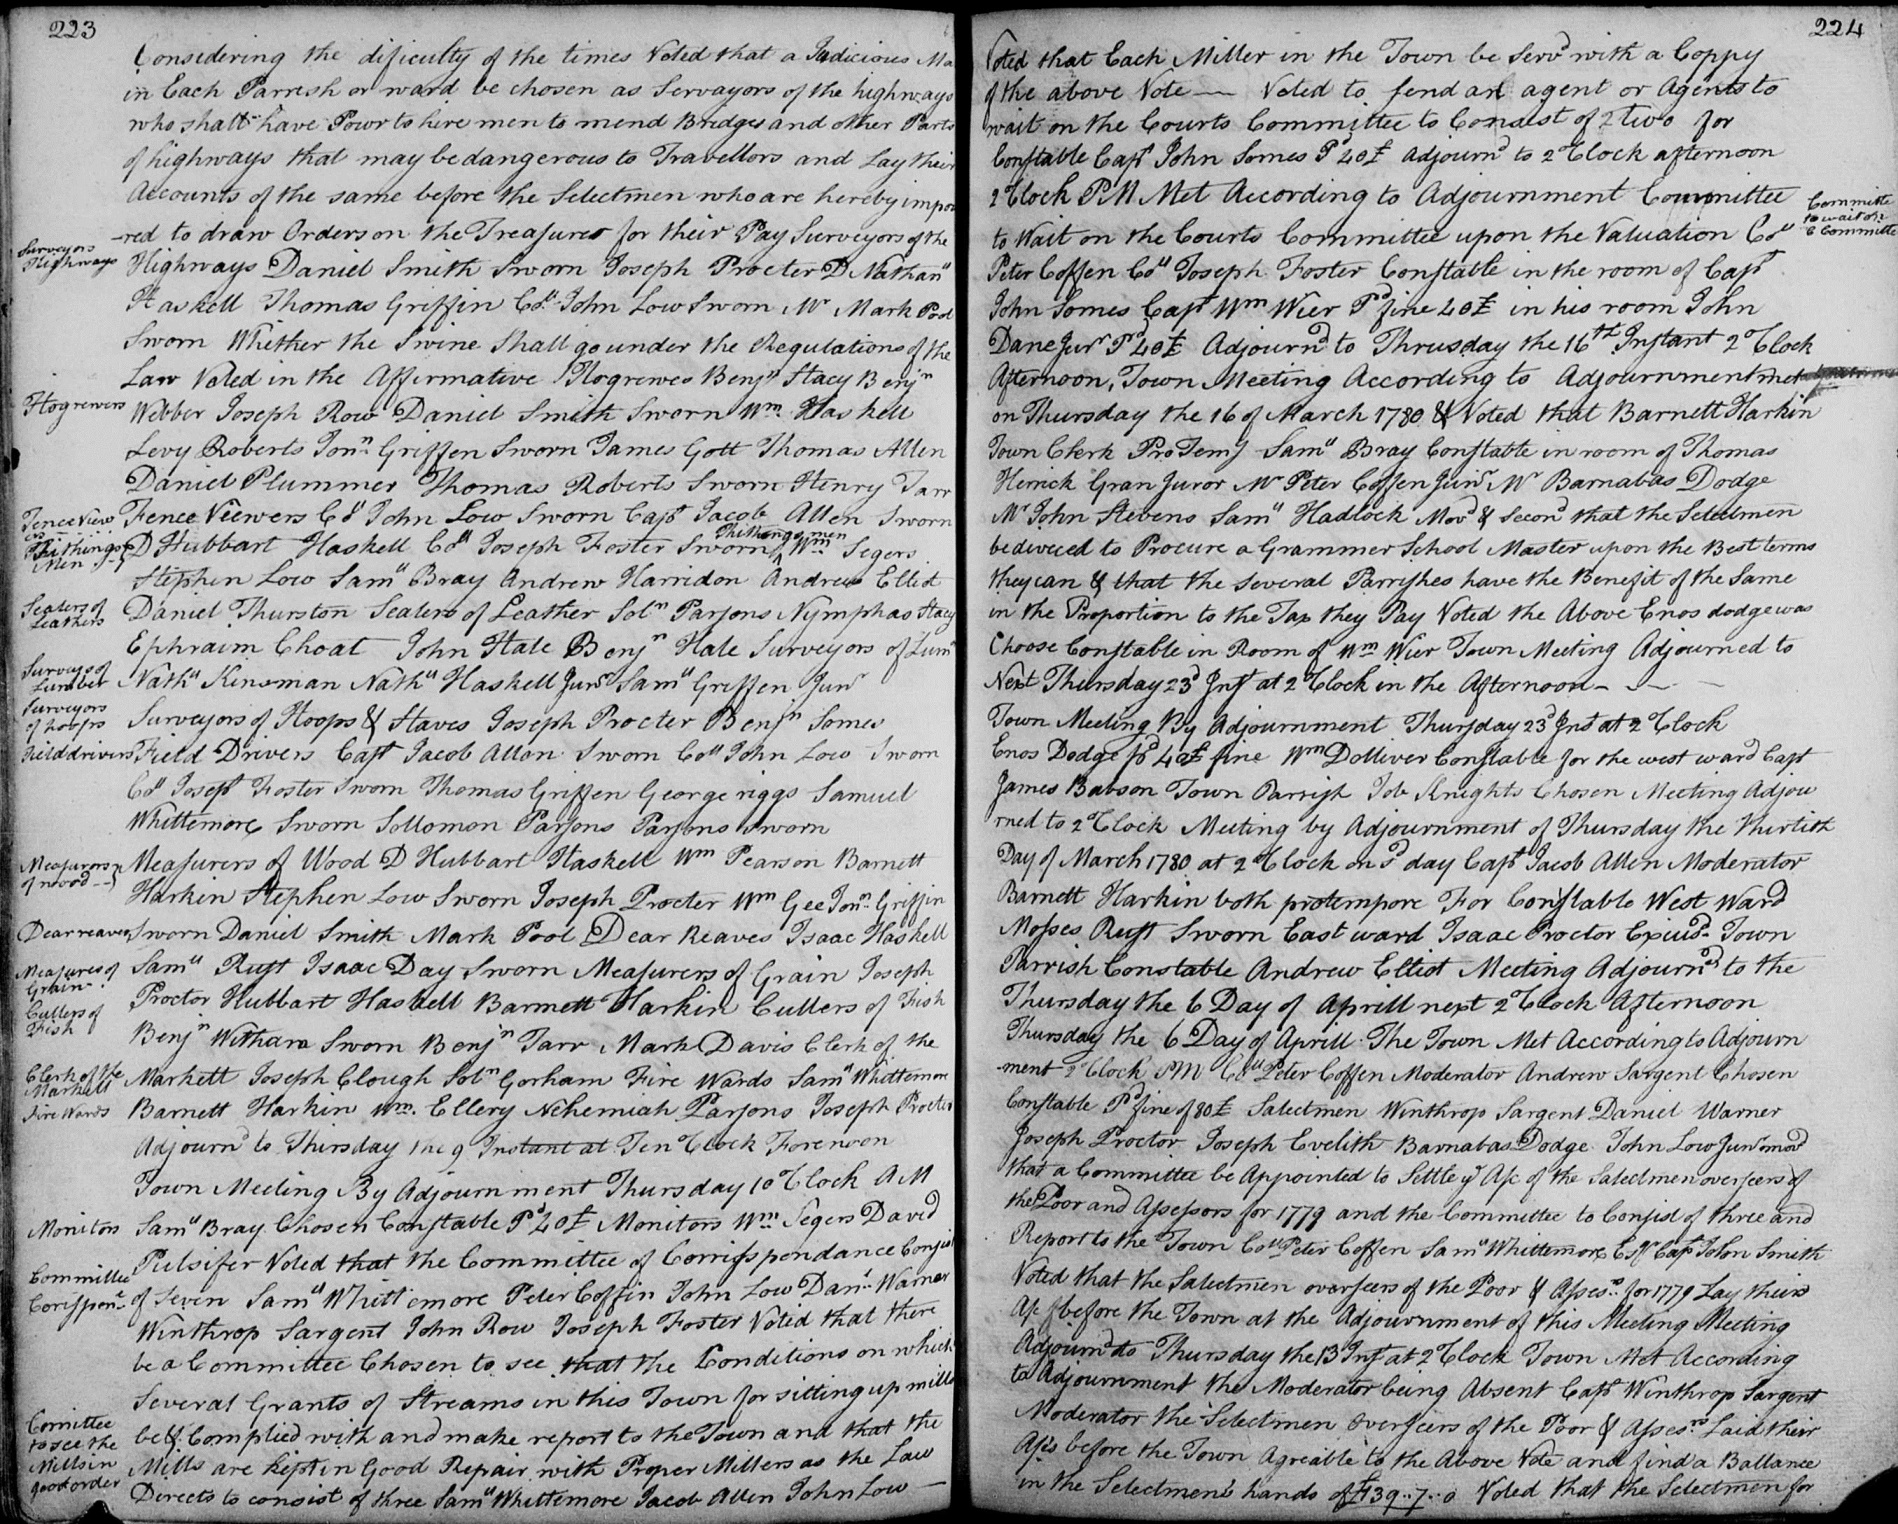 223
Considering the dificulty of the times Voted that a Judicious Ma
in Each Parrish or ward be chosen as Servayors of the highways
who shall have Powr to hire men to mend Bridges and other Parts
of highways that may be dangerous to Travellors and Lay their
Accounts of the same before the Selectmen who are hereby impow
-red to draw Orders on the Treasurer for their Pay Surveyors of the
Surveyors
Highways
Highways Daniel Smith Sworn Joseph Procter D Nathanll
Haskell Thomas Griffin Coll John Low Sworn Mr Mark Pool
Sworn Whether the Swine Shall go under the Regulations of the
Law Voted in the Affirmative Hogrewes Benjn Stacy Benjn
Hogrewers
Webber Joseph Row Daniel Smith Sworn Wm Haskell
Levy Roberts Jonn Griffen Sworn James Gott Thomas Allen
Daniel Plummer Thomas Roberts Sworn Henry Tarr
Fence View
ers
Fence Viewers Coll John Low Sworn Capt Jacob Allen Sworn
Thithingmen
Thithings
Men
D Hubbart Haskell Coll Joseph Foster Sworn Wm Segers
Stephen Low Samll Bray Andrew Harridon Andrew Elliot
Sealers of
Leathers
Daniel Thurston Sealers of Leather Soln Parsons Nymphas Stacy
Ephraim Choat John Hale Benjn Hale Surveyors of Lumr
Surveys of
Lumber
Nathll Kinsman Nathll Haskell Junr Samll Griffen Junr
Surveyors
of hoops
Surveyors of Hoops & Staves Joseph Procter Benjn Somes
Fielddrivers
Field Drivers Capt Jacob Allen Sworn Coll John Low Sworn
Coll Joseph Foster Sworn Thomas Griffen George riggs Samuel
Whittemore Sworn Sollomon Parsons Parsons sworn
Measurers
of wood
Measurers of Wood D Hubbart Haskell Wm Pearson Barnett
Harkin Stephen Low Sworn Joseph Procter Wm Gee Jonn Griffin
Dear reaves
Sworn Daniel Smith Mark Pool Dear Reaves Isaac Haskell
Samll Rust Isaac Day Sworn Measurers of Grain Joseph
Measures of
Grain
Proctor Hubbart Haskell Barnett Harkin Cullers of Fish
Cullers of
Fish
Benjn Witham Sworn Benjn Tarr Mark Davis Clerk of the
Clerk of the
Markett
Markett Joseph Clough Soln Gorham Fire Wards Samll Whittemore
Fire Wards
Barnett Harkin Wm Ellery Nehemiah Parsons Joseph Procter
Adjournd to Thirsday the 9 Instant at Ten oClock Forenoon
Town Meeting By Adjournment Thursday 10 oClock A M
Monitors
Samll Bray Chosen Constable Pd 40£ Monitors Wm Segers David
Pulsifer Voted that the Committee of Corrispondance Consist
Committee
Corrispont
of Seven Samll Whittemore Peter Coffin John Low Danl Warner
Winthrop Sargent John Row Joseph Foster Voted that there
be a Committee Chosen to see that the Conditions on which
Several Grants of Streams in this Town for sitting up mills
Comittee
to see the
Mills in
good order
be Complied with and make report to the Town and that the
Mills are kept in Good Repair with Proper Millers as the Law
Directs to consist of three Samll Whittemore Jacob Allen John Low
224
Voted that Each Miller in the Town be Servd with a Coppy
of the above Vote Voted to send an agent or Agents to
wait on the Courts Committee to Consist of 2 Two for
Constable Capt John Somes Pd 40£ Adjournd to 2 oClock afternoon
2 oClock P M Met According to Adjournment Committee
Committe
to wait on
C Committe
to Wait on the Courts Committee upon the Valuation Coll
Peter Coffen Coll Joseph Foster Constable in the room of Capt
John Somes Capt Wm Wier Pd fine 40£ in his room John
Dane Junr Pd 40£ Adjournd to Thrusday the 16th Instant 2 oClock
Afternoon, Town Meeting According to Adjournment met
on Thursday the 16 of March 1780 & Voted that Barnett Harkin
Town Clerk ProTemp Samll Bray Constable in room of Thomas
Herrick Gran Juror Mr Peter Coffen Junr Mr Barnabas Dodge
Mr John Stevens Samll Hadlock Movd & Second that the Selectmen
be direced to Procure a Grammer School Master upon the Best terms
they can & that the Several Parrishes have the Benefit of the Same
in the Proportion to the Tax they Pay Voted the Above Enos dodge was
Choose Constable in Room of Wm Wier Town Meeting Adjourned to
Next Thirsday 23d Inst at 2 oClock in the Afternoon
Town Meeting By Adjournment Thursday 23d Inst at 2 oClock
Enos Dodge pd 40£ fine Wm Dolliver Constable for the west ward Capt
James Babson Town Parrish Job Knights Chosen Meeting Adjou
rned to 2 oClock Meeting by Adjournment of Thursday the thirtith
Day of March 1780 at 2 oClock on sd day Capt Jacob Allen Moderator
Barnett Harkin both protempore For Constable West Ward
Mosses Rust Sworn East ward Isaac Proctor Excusd Town
Parrish Constable Andrew Elliot Meeting Adjournd to the
Thursday the 6 Day of Aprill next 2 oClock Afternoon
Thursday the 6 Day of Aprill The Town Met According to Adjourn
-ment 2 oClock PM Coll Peter Coffen Moderator Andrew Sargent Chosen
Constable Pd fine of 80£ Salectmen Winthrop Sargent Daniel Warner
Joseph Proctor Joseph Evelith Barnabas Dodge John Low Junr movd
that a Committee be Appointed to Settle ye Ac of the Salectmen overseers of
the Poor and Assessors for 1779 and the Committee to Consist of three and
Report to the Town Coll Peter Coffen Samll Whittemore Esqr Capt John Smith
Voted that the Salectmen overseers of the Poor & Assesrs for 1779 Lay their
Ac before the Town at the Adjournment of this Meeting Meeting
Adjournd to Thursday the 13 Inst at 2 oClock Town Met According
to Adjournment the Moderator being Absent Capt Winthrop Sargent
Moderator the Selectmen Overseers of the Poor & Assesrs Laid their
Acs before the Town Agreable to the Above Vote and find a Ballance
in the Selectmens hands of £139..7..0 Voted that the Selectmen for